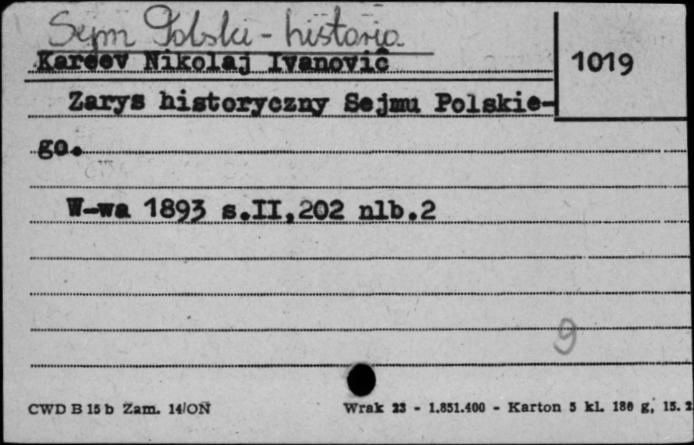 Sejm Polski - historia
Kareev Nikolaj Ivanovič
1019
Zarys historyczny Sejmu Polskie-
go.
W-wa 1893 s.II,202 nlb.2
9
CWD B 15 b Zam. 14/ON
Wrak 23 - 1.851.400 - Karton 5 kl. 180 g, 15. 2